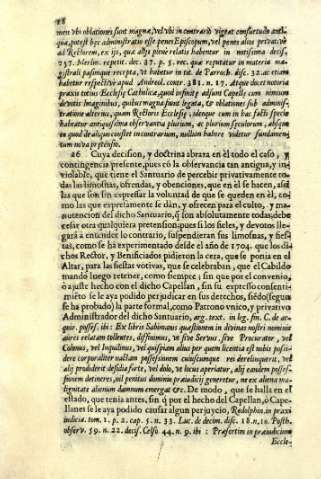 18
men vbi oblationes sunt magnæ, vel vbi in contrario vigeat consuetudo anti-
qua, potest hæc administratio esse penes Episcopum, vel penes alios privatè, ve
ad Rectorem, ex ijs, quæ aliàs plenè relatis habentur in meissima decis.
257. Merlin. repetit. dec. 87. p. 5. rec. qua reputatur in materia ma-
gistrali passimque recepta, vt habetur in tit. de Paroch. disc. 32. ac etiam
habetur respectivè apud Andreol. contr. 281. n. 17. Atque docet notoria
praxis totius Ecclesiæ Catholicæ, quod infinitæ adsunt Capellæ cum nimium
devotis Imaginibus, quibus magna sunt legata, & oblationes sub adminis-
tratione alterius, quam Rectoris Ecclesiæ, ideoque cum in hac facti specie
habeatur antiquissima observantia plurium, ac plurium sæculorum, absque
eo quod de aliquo constet in contrarium, nullum habere videtur fundamen-
tum nova prætensio.
26 Cuya decision, y doctrina abraza en èl todo el caso, y
contingencia presente, pues cò la observancia tan antigua, y in-
violable, que tiene el Santuario de percebir privativamente to-
das las limosnas, ofrendas, y obenciones, que en èl se hacen, assì
las que son sin expressar la voluntad de que se queden en èl, co-
mo las que expressamente se dàn, y ofrecen para el culto, y ma-
nutencion del dicho Santuario, q̃ son absolutamente todas, debe
cessar otra qualquiera pretension, pues si los fieles, y devotos lle-
gàra à entender lo contrario, suspendieran sus limosnas, y fies-
tas, como se hà experimentado desde el año de 1704. que los di-
chos Rector, y Beneficiados pidieron la cera, que se ponia en el
Altar, para las fiestas votivas, que se celebraban, que el Cabildo
mandò luego retener, como siempre; sin que por el convenio,
ò ajuste hecho con el dicho Capellan, sin su expresso consenti-
miẽto se le aya podido perjudicar en sus derechos, siẽdo (segun
se ha probado) la parte formal, como Patrono vnico, y privativo
Administrador del dicho Santuario, arg. text. in leg. fin. C. de ac-
quir. posses. ibi: Ex libris Sabinianis quæstionem in divinas nostri nominis
aures relatam tollentes, diffinimus, vt sive Servus, sive Procurator, vel
Colonus, vel Inquilinus, vel quispiam alius per quem licentia est nobis possi-
dere corporaliter nactam possessionem cuiuscumque rei dereliquerit, vel
alij prodiderit desidia forte, vel dolo, vt locus aperiatur, alij eandem posses-
sionem detinere, nil penitus domino præiudicij generetur, ne ex aliena ma-
lignitate alienum damnum emergat &c. De modo, que se halla en el
estado, que tenia antes, sin q̃ por el hecho del Capellan, ò Cape-
llanes se le aya podido causar algun perjuycio, Redolphin. in praxi
iudiciar. tom. 1. p. 2. cap. 5. n. 33. Luc. de decim. disc. 18. n. 10. Posth.
observ. 59. n. 22. decis. Celso 44. n. 9. ibi: Præsertim in præiudicium
Eccle-